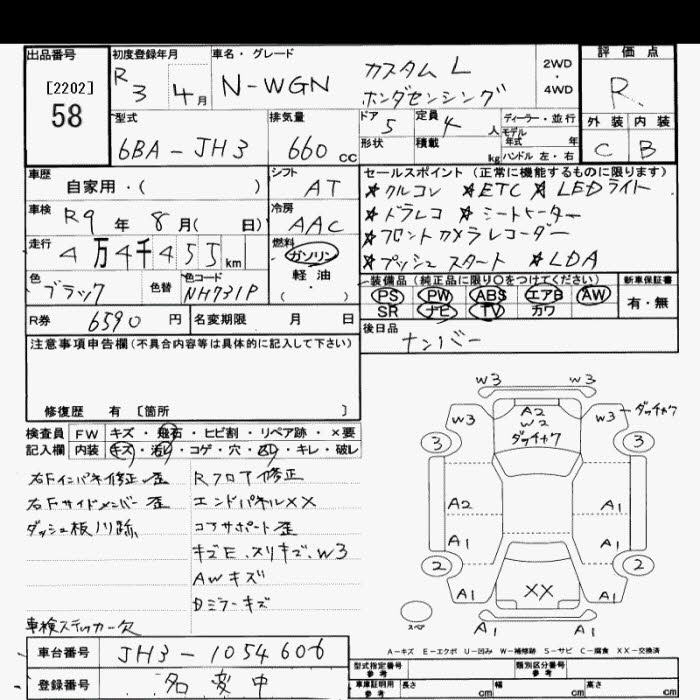 出品番号
[2202]
58
初度登録年月
R 3 4月
車名・グレード
N-WGN カスタム L
ホンダセンシング
2WD・4WD
評価点
R
外装 内装
C B
型式
6BA-JH3
排気量
660cc
ドア
5
定員
4人
形状
積載
kg
ディーラー・並行
モデル年式 年
ハンドル 左・右
車歴
自家用・( )
シフト
AT
車検
R9年 8月( 日)
冷房
AAC
走行
4万4千455km
燃料
ガソリン
軽油
( ・ )
色
ブラック
色替
色コード
NH731P
R券
6590円
名変期限 月 日
セールスポイント(正常に機能するものに限ります)
☆クルコン ☆ETC ☆LEDライト
☆ドラレコ ☆シートヒーター
☆フロントカメラレコーダー
☆プッシュスタート ☆LDA
装備品(純正品に限り○をつけてください)
PS PW ABS エアB AW
SR ナビ TV カワ
新車保証書
有・無
後日品
ナンバー
注意事項申告欄(不具合内容等は具体的に記入して下さい)
修復歴 有 [箇所 ]
検査員記入欄
FW キズ・飛石・ヒビ割・リペア跡・×要
内装 キズ・汚れ・コゲ・穴・凹・キレ・破レ
右Fインパネ修正、歪
右Fサイドメンバー歪
ダッシュ板凹跡
Rフロア修正
エンドパネルXX
コアサポート歪
キズE、スリキズ、W3
AWキズ
Dミラーキズ
車検ステッカー欠
W3 W3
W3 A2 W2 ダッチャク W3 ダッチャク
3 3
A2 A1
A1 A1
2 2
A1 XX A1
A1 A1
スペア
A-キズ E-エクボ U-凹み W-補修跡 S-サビ C-腐食 XX-交換済
車台番号
JH3-1054606
登録番号
名変中
型式指定番号
参考
類別区分番号
参考
車庫証明用
参考
長さ cm 幅 cm 高さ cm